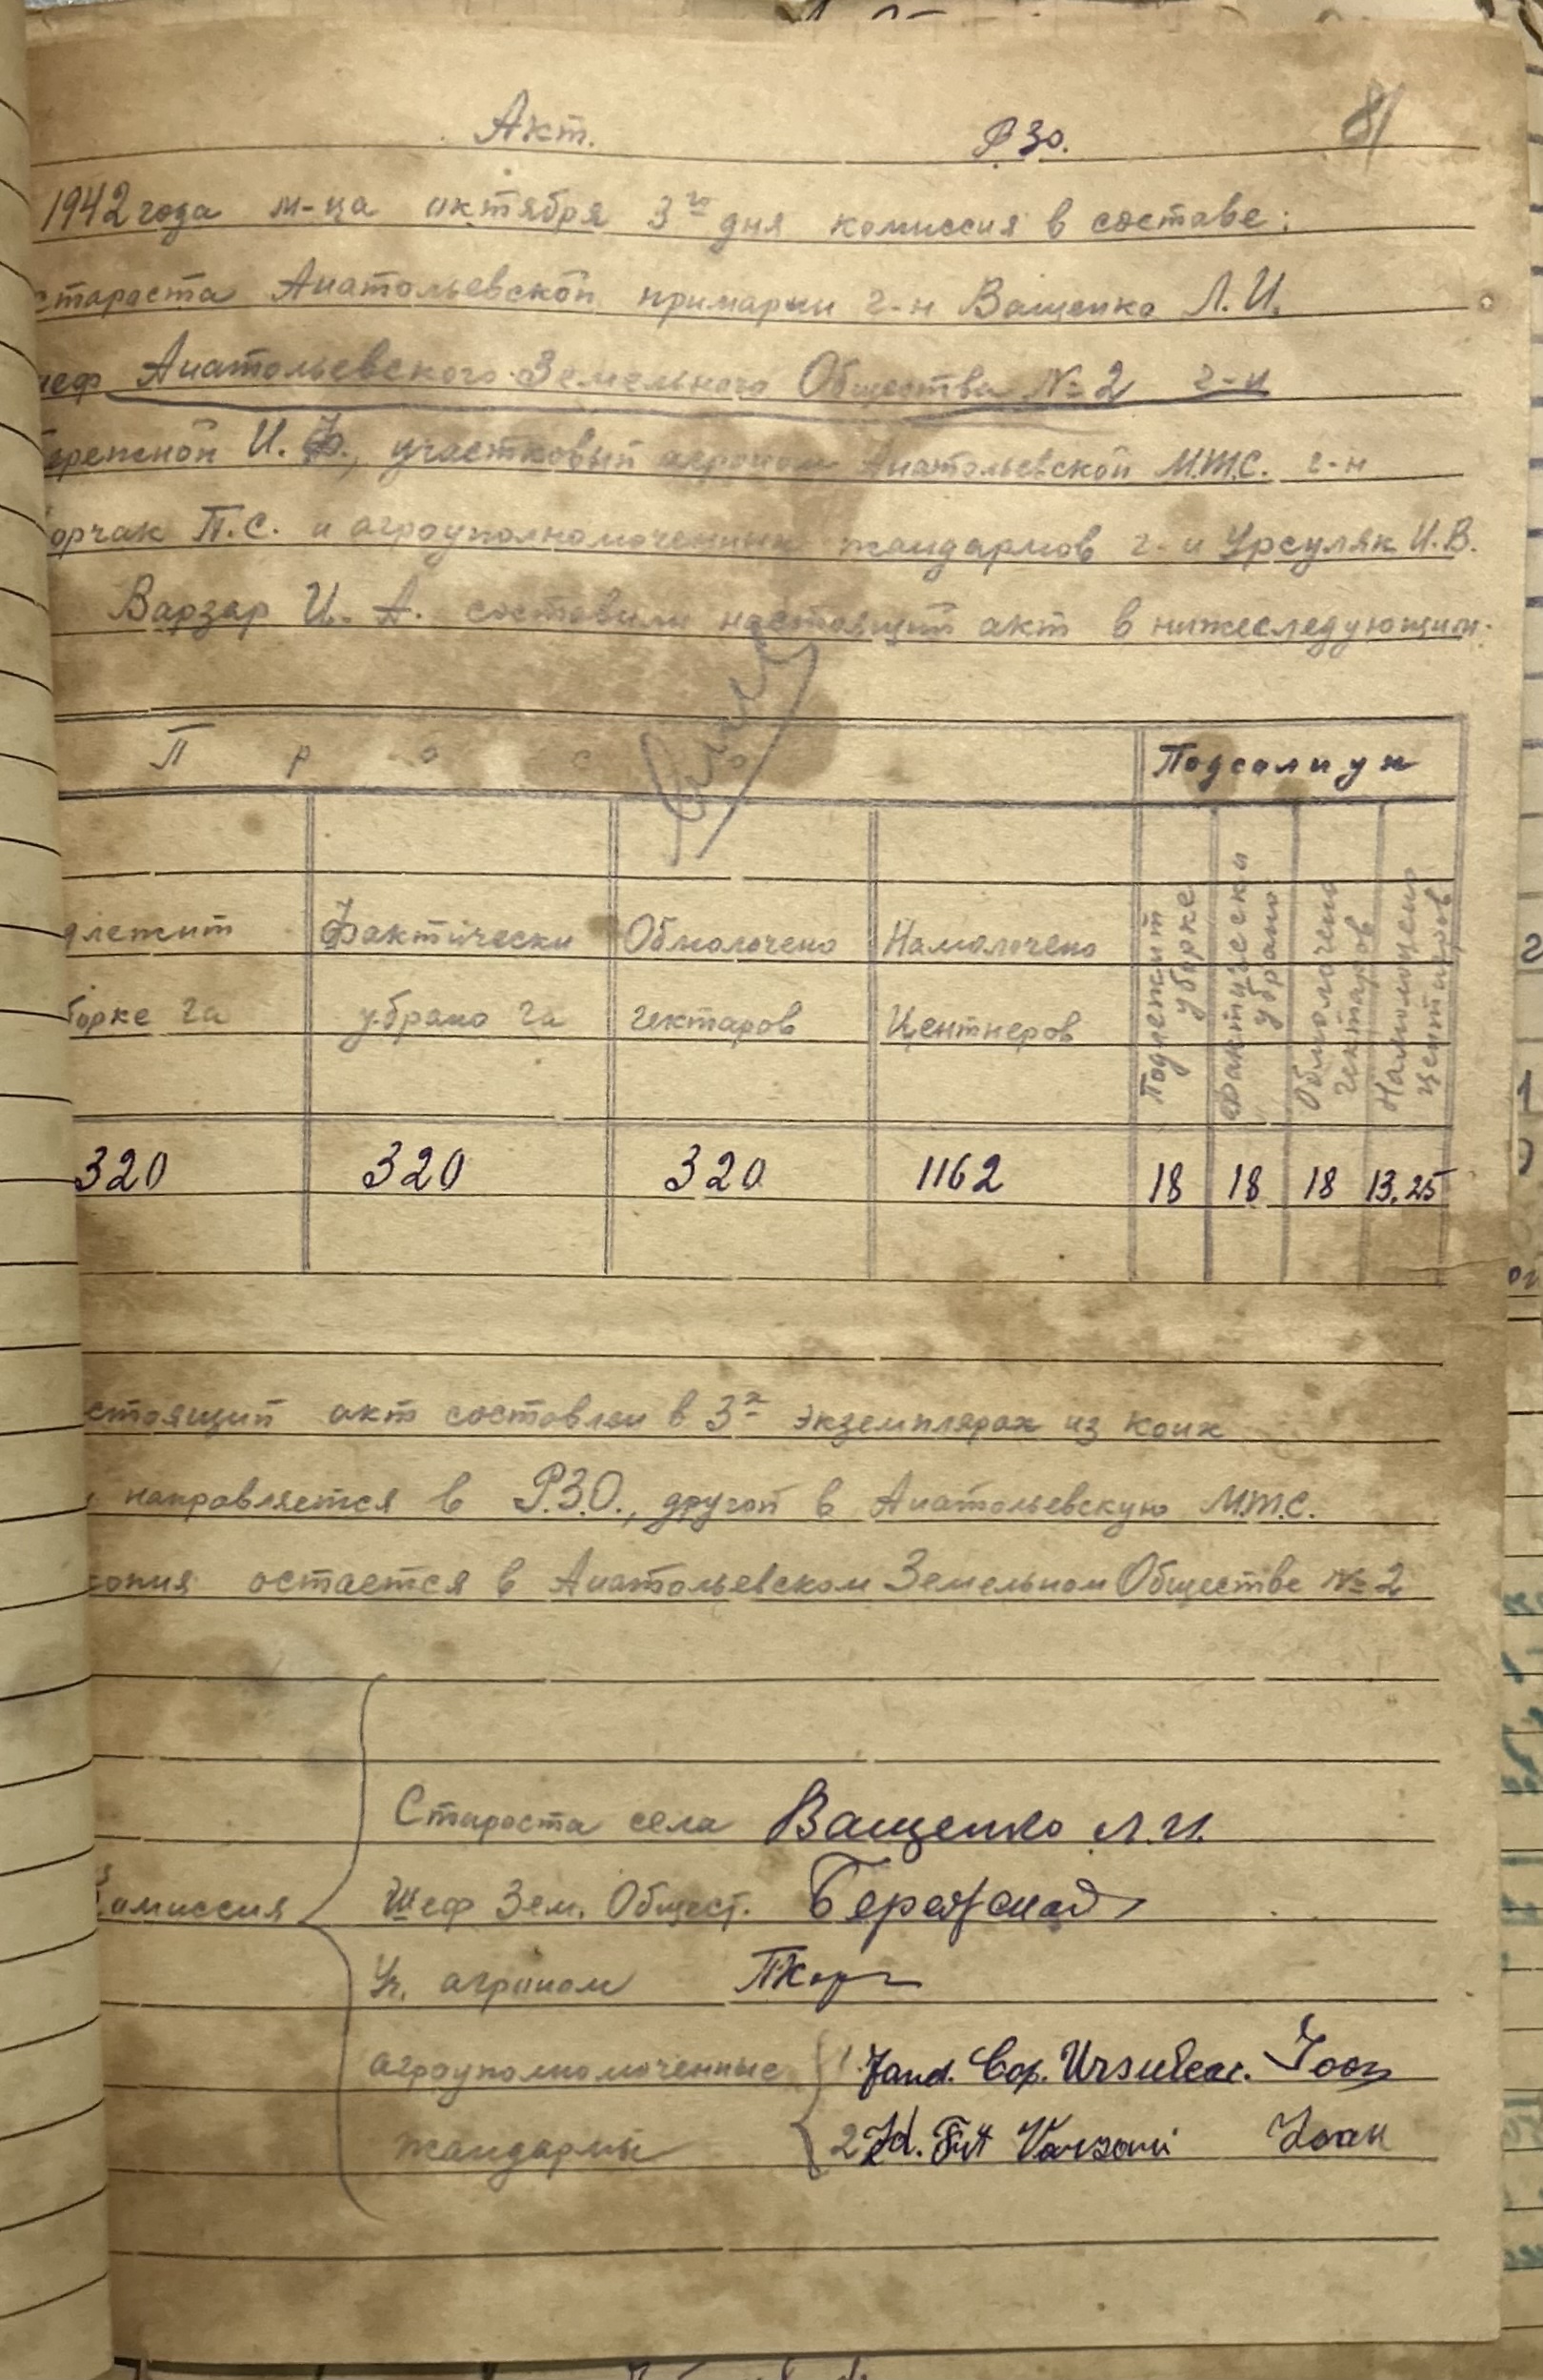 Акт. РЗО. 81
1942 года м-ца октября 3го дня комиссия в составе:
стараста Анатольевской примарии г-н Ващенко Л.И.
шеф Анатольевского Земельного Общества №2 г-н
Бережной И.Ф., участковый агроном Анатольевской М.Т.С. г-н
орчак П.С. и агроуполномоченных жандармов г-н Урсуляк И.В.
Варзар И.А. составили настоящий акт в нижеследующим:
П р о с о
Подсолнух
длежит Фактически Обмолочено Намолочено
борке га убрано га гектаров Центнеров
Подлежит уборке
Фактически убрано
Обмолочено гектаров
Намолочено центнеров
320 320 320 1162 18 18 18 13,25
стоящий акт составлен в 3х экземплярах из коих
направляется в Р.З.О., другой в Анатольевскую М.Т.С.
копия остается в Анатольевском Земельном Обществе №2
Староста села Ващенко Л.И.
Комиссия Шеф Зем. Общест. Бережной
Уч. агроном ПКорч
агроуполномоченные 1. Jand. Cap. Ursuleac. Ioan
жандармы 2 Jd. Ioan